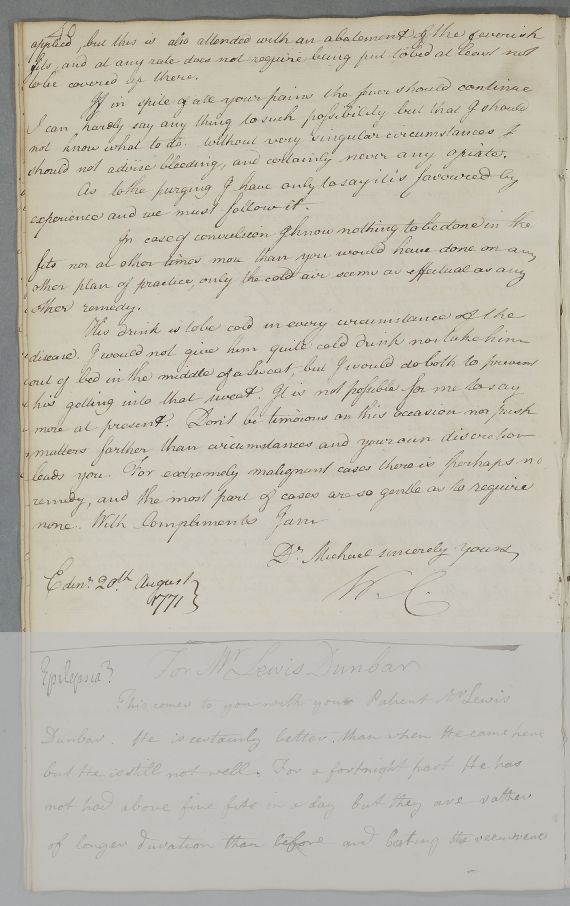 40
applied, but this is also attended with an abatement of the feverish
fits, and at any rate does not require being put to bed at least not
to be covered up there.
If in spite of all your pains the fever should continue
I can hardly say any thing to such possibility but that I should
not know what to do. without very singular circumstances I
should not advise bleeding, and certainly never any opiate.
As to the purging I have only to say it is favoured by
experience and we must follow it.
In case of convulsion I know nothing to be done in the
fits nor at other times more than you would have done on any
other plan of practice, only the cold air seems as effectual as any
other remedy.
His drink is to be cold in every circumstance of the
disease. I would not give him quite cold drink nor take him
out of bed in the middle of a Sweat, but I would do both to prevent
his getting into that sweat. It is not possible for me to say
more at present. Don't be timorous on this occasion nor push
matters farther than circumstances and your own discretion
leads you. For extremely malignant cases there is perhaps no
remedy, and the most part of cases are so gentle as to require
none. With Compliments I am
Dr. Michael sincerely yours,
W. C.
Edinr. 20th. August
1771
Epilepsia
For Mr Lewis Dunbar
This comes to you with your Patient Mr Lewis
Dunbar. He is certainly better, than when He came here
but He is still not well. For a fortnight past He has
not had above five fits in a day but they are rather
of longer duration than before and bating the recurrence